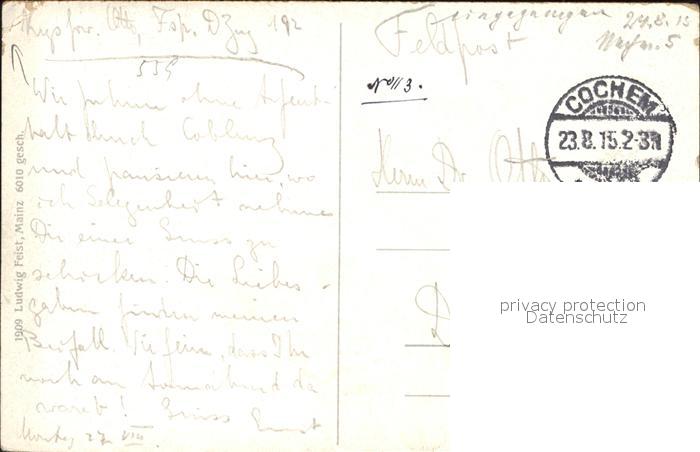 Otto,
192
555
Wir fuhren ohne Aufent-
halt durch Coblenz
und pausieren hier, wo
ich Gelegenheit nehme
Dir einen Gruss zu
schicken. Die Liebes-
gaben finden meinen
Beifall. Wie fein, dass Ihr
noch am Sonnabend da
waret! Gruss Ernst
VIII
1909 Ludwig Feist, Mainz 6010 gesch.
eingegangen
24.8.15
Nachm. 5
Feldpost
No 113.
COCHEM
23.8.15.2-3N
Herrn Dr. Otto
D
privacy protection
Datenschutz